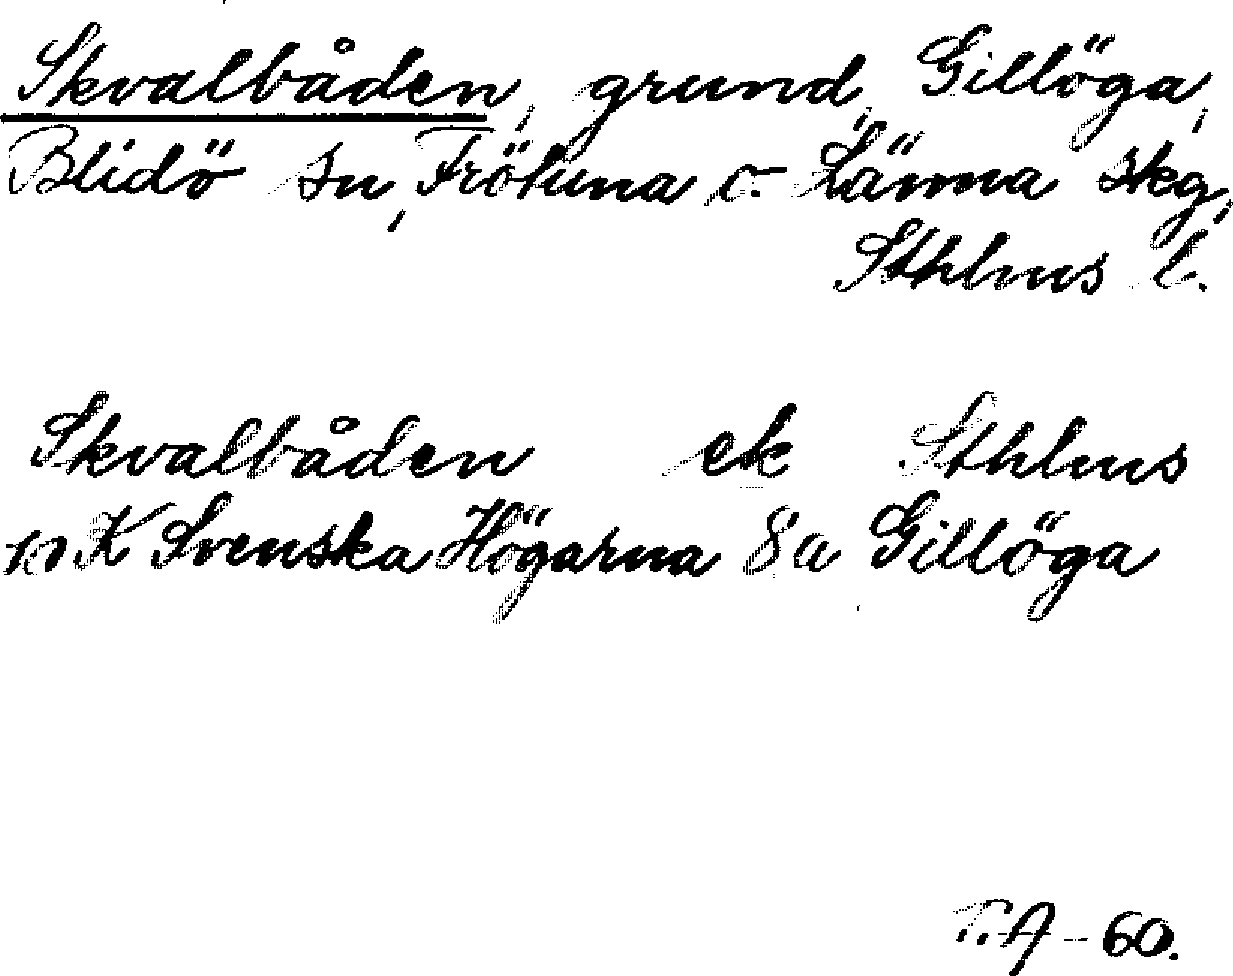 Skvalbåden, grund, Gillöga,
Blidö sn, Frötuna o. Länna skg,
Sthlms l.
Skvalbåden ek Sthlms
10 K Svenska Högarna 8a Gillöga
T.A -60.